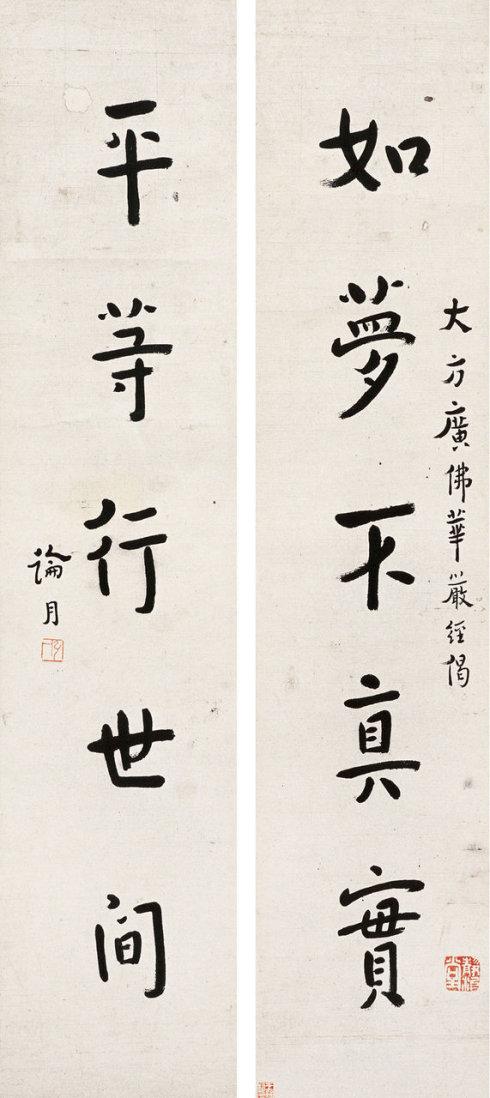 大方廣佛華嚴經偈
如夢不真實
平等行世间
論月